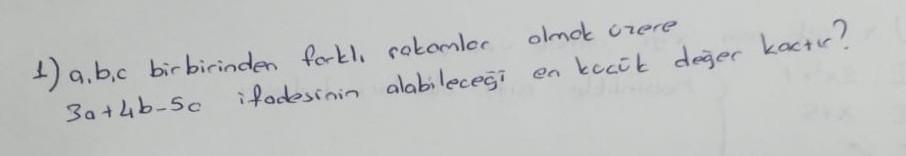 1) a,b,c birbirinden farklı rakamlar olmak üzere
3a+4b-5c ifadesinin alabileceği en küçük değer kaçtır?